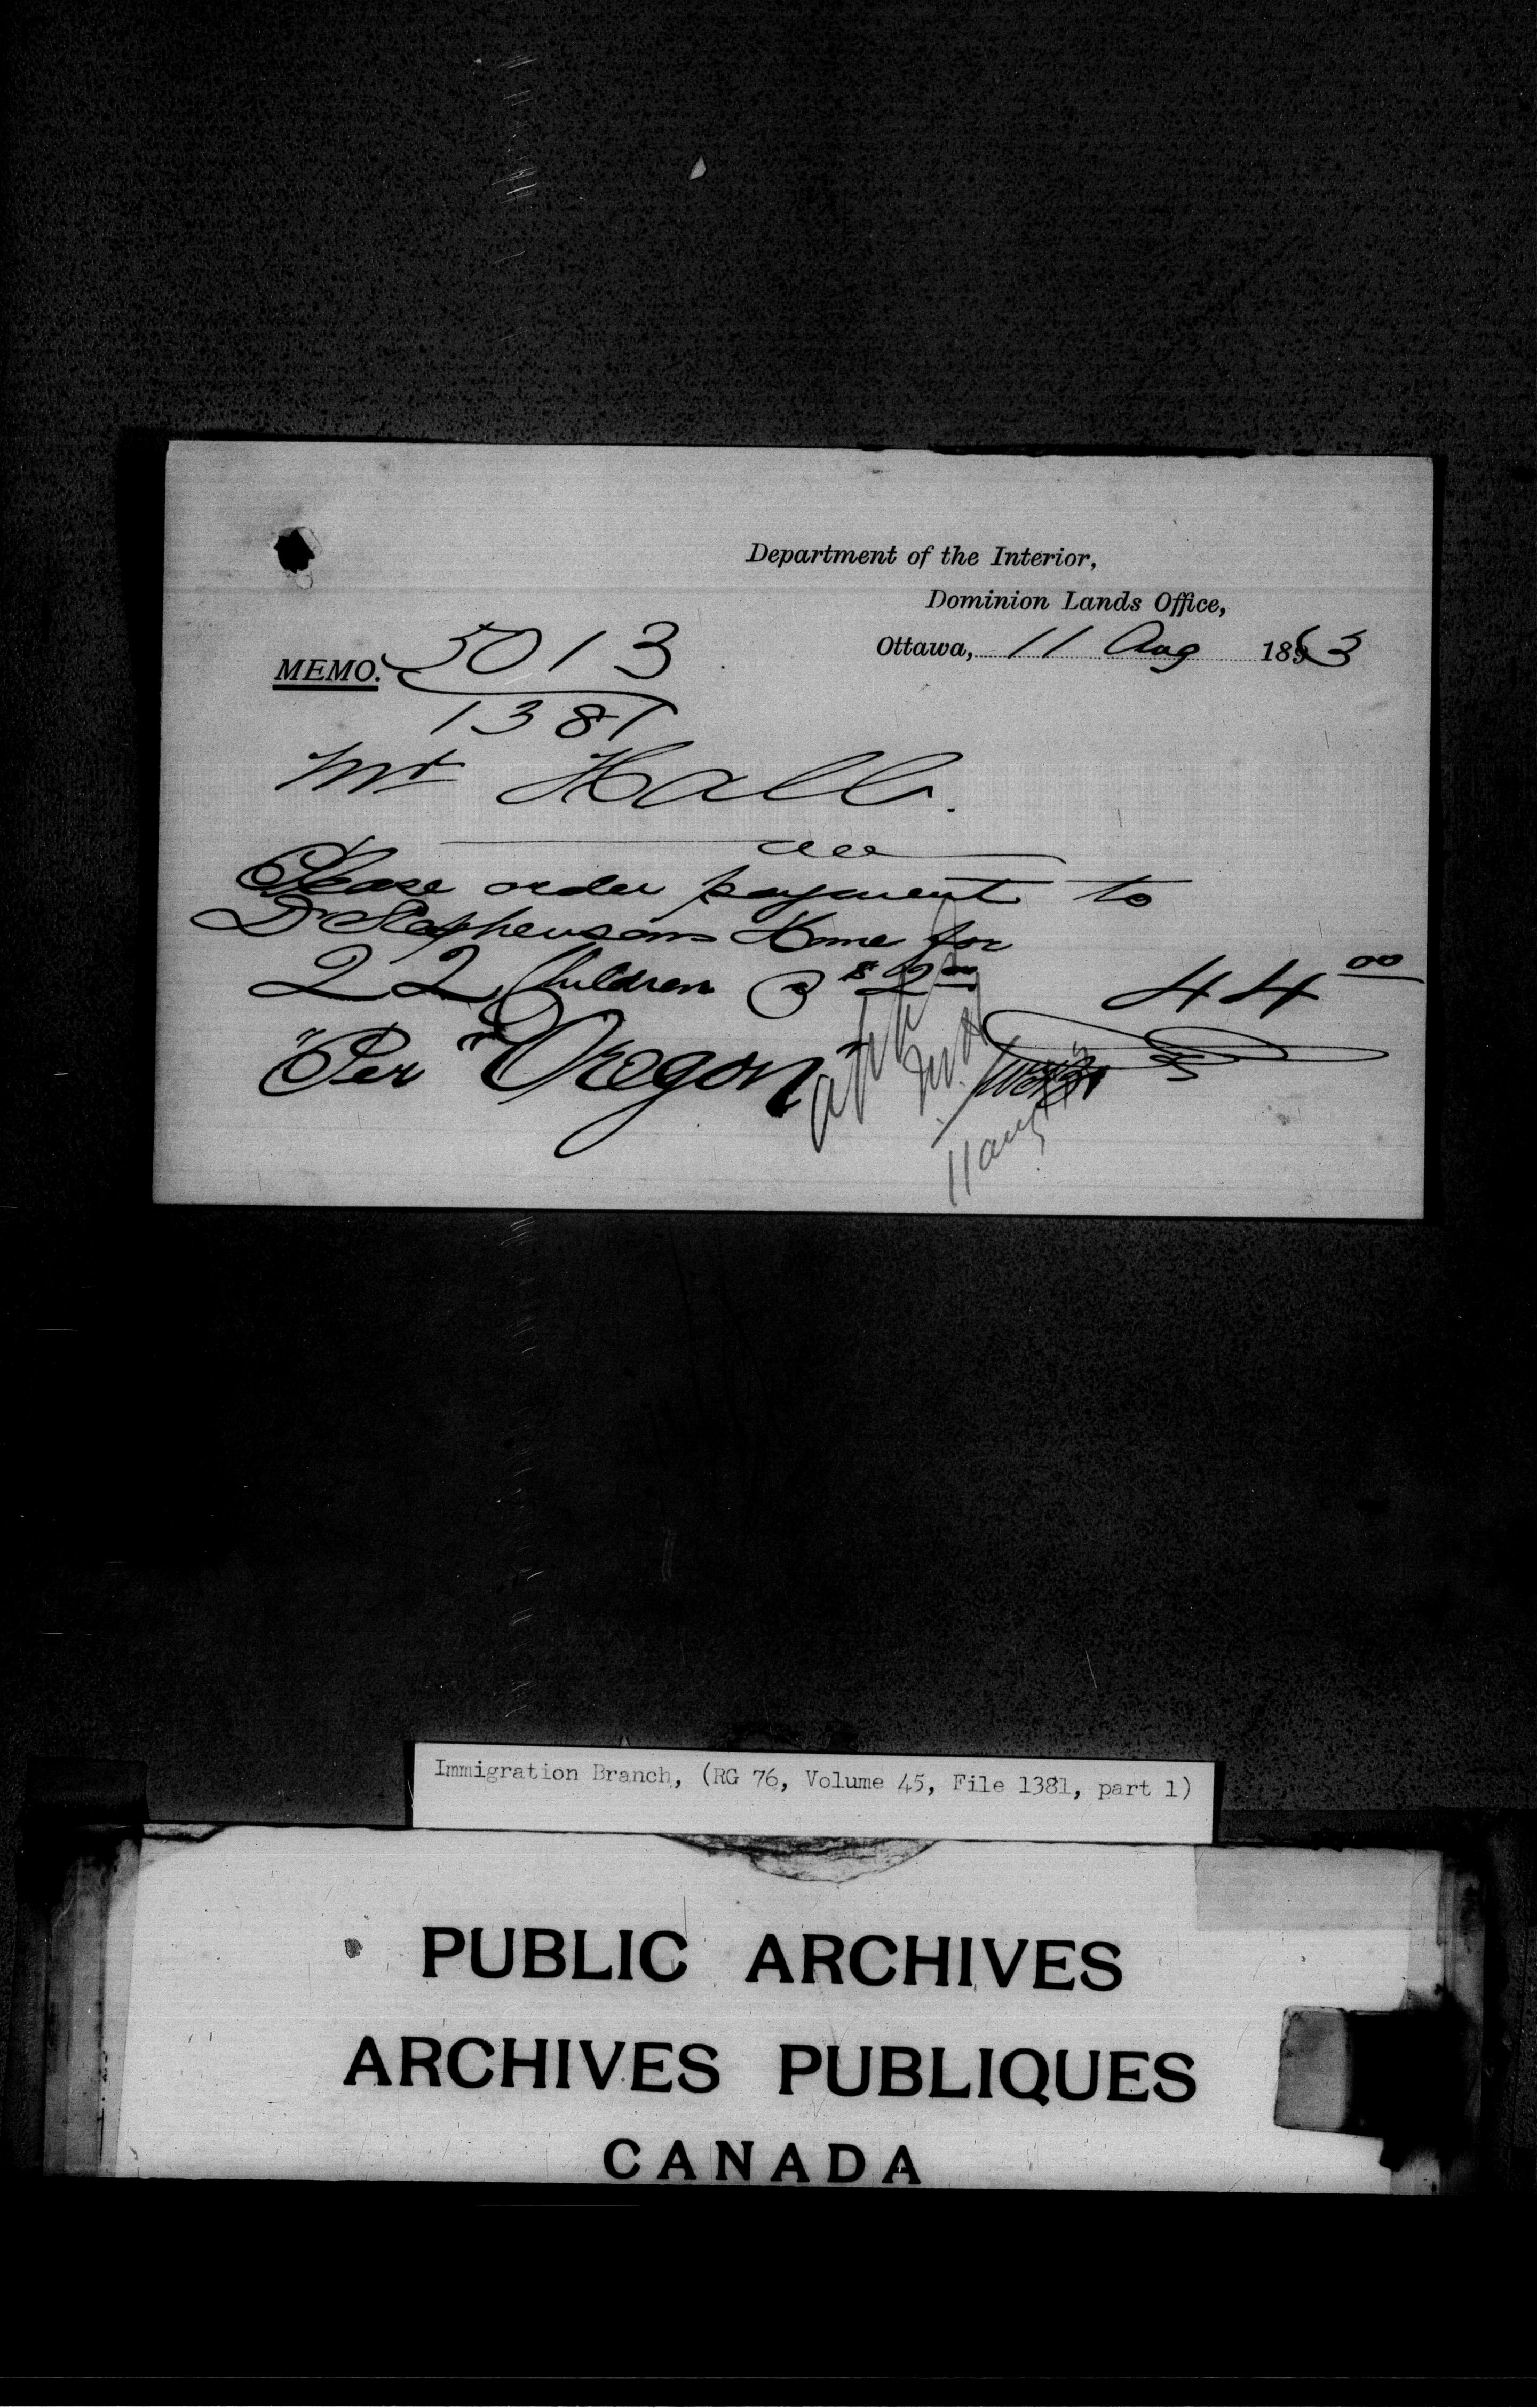 Department of the Interior,
Dominion Lands Office,
Ottawa, 11 Aug 1893
MEMO. 5013
1381
Mr Hall.
Please order payment to
Dr Stephensons Home for
22 Children @ $2.00 44 00
"Per "Oregon"
11 aug
Immigration Branch, (RG 76, Volume 45, File 1381, part 1)
PUBLIC ARCHIVES
ARCHIVES PUBLIQUES
CANADA